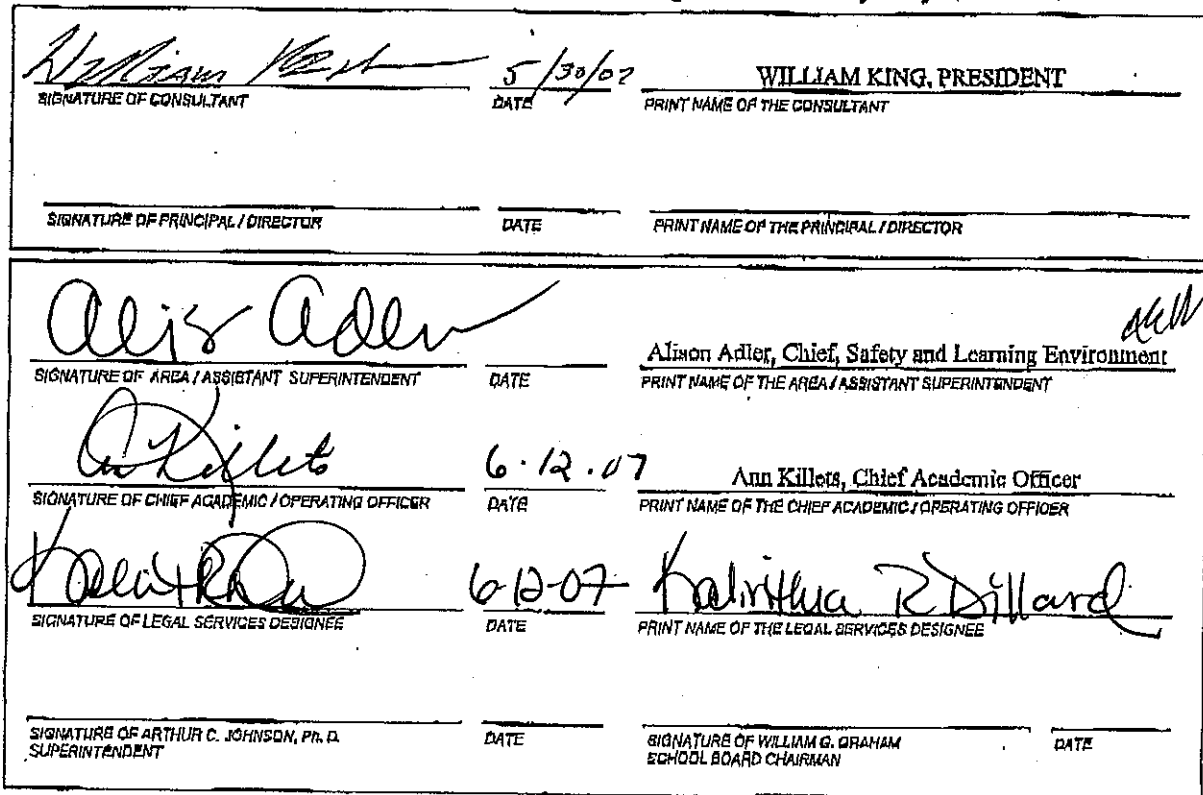 William 5/30/07 WILLIAM KING, PRESIDENT
SIGNATURE OF CONSULTANT DATE PRINT NAME OF THE CONSULTANT
SIGNATURE OF PRINCIPAL / DIRECTOR DATE PRINT NAME OF THE PRINCIPAL / DIRECTOR
Alison Adler, Chief, Safety and Learning Environment
SIGNATURE OF AREA / ASSISTANT SUPERINTENDENT DATE PRINT NAME OF THE AREA / ASSISTANT SUPERINTENDENT
Killets 6.12.07 Ann Killets, Chief Academic Officer
SIGNATURE OF CHIEF ACADEMIC / OPERATING OFFICER DATE PRINT NAME OF THE CHIEF ACADEMIC / OPERATING OFFICER
6-12-07 Kalinthia R Dillard
SIGNATURE OF LEGAL SERVICES DESIGNEE DATE PRINT NAME OF THE LEGAL SERVICES DESIGNEE
SIGNATURE OF ARTHUR C. JOHNSON, Ph. D. DATE SIGNATURE OF WILLIAM G. GRAHAM DATE
SUPERINTENDENT SCHOOL BOARD CHAIRMAN